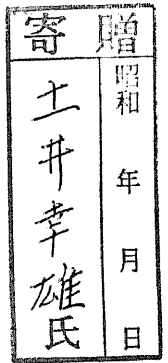 寄贈
昭和 年 月 日
土井幸雄氏